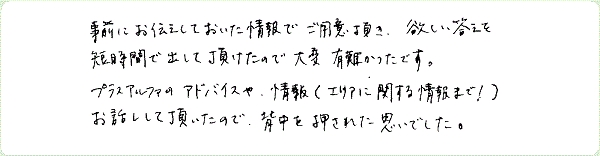 事前にお伝えしておいた情報でご用意頂き、欲しい答えを
短時間で出して頂けたので大変有難かったです。
プラスアルファのアドバイスや、情報(エリアに関する情報まで!)
お話しして頂いたので、背中を押された思いでした。